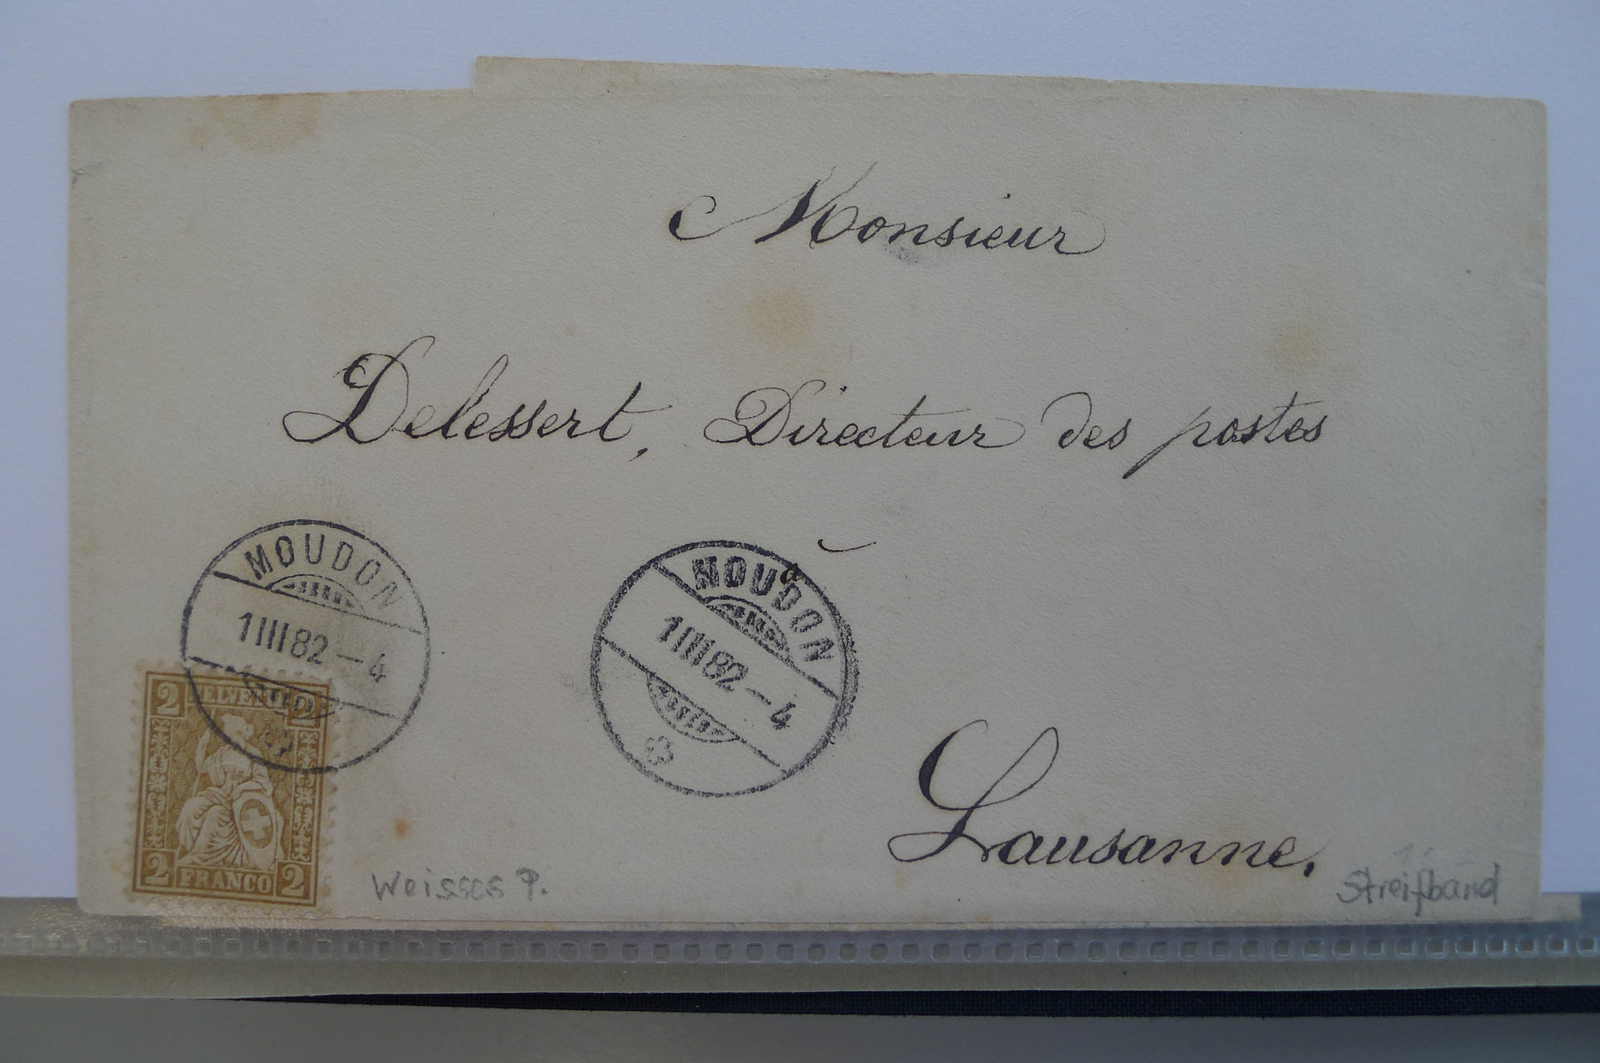 Monsieur
Delessert, Directeur des postes
à
Lausanne,
MOUDON
1 III 82 – 4
MOUDON
1 III 82 – 4
2 HELVETIA 2
2 FRANCO 2
Weisses P.
Streifband